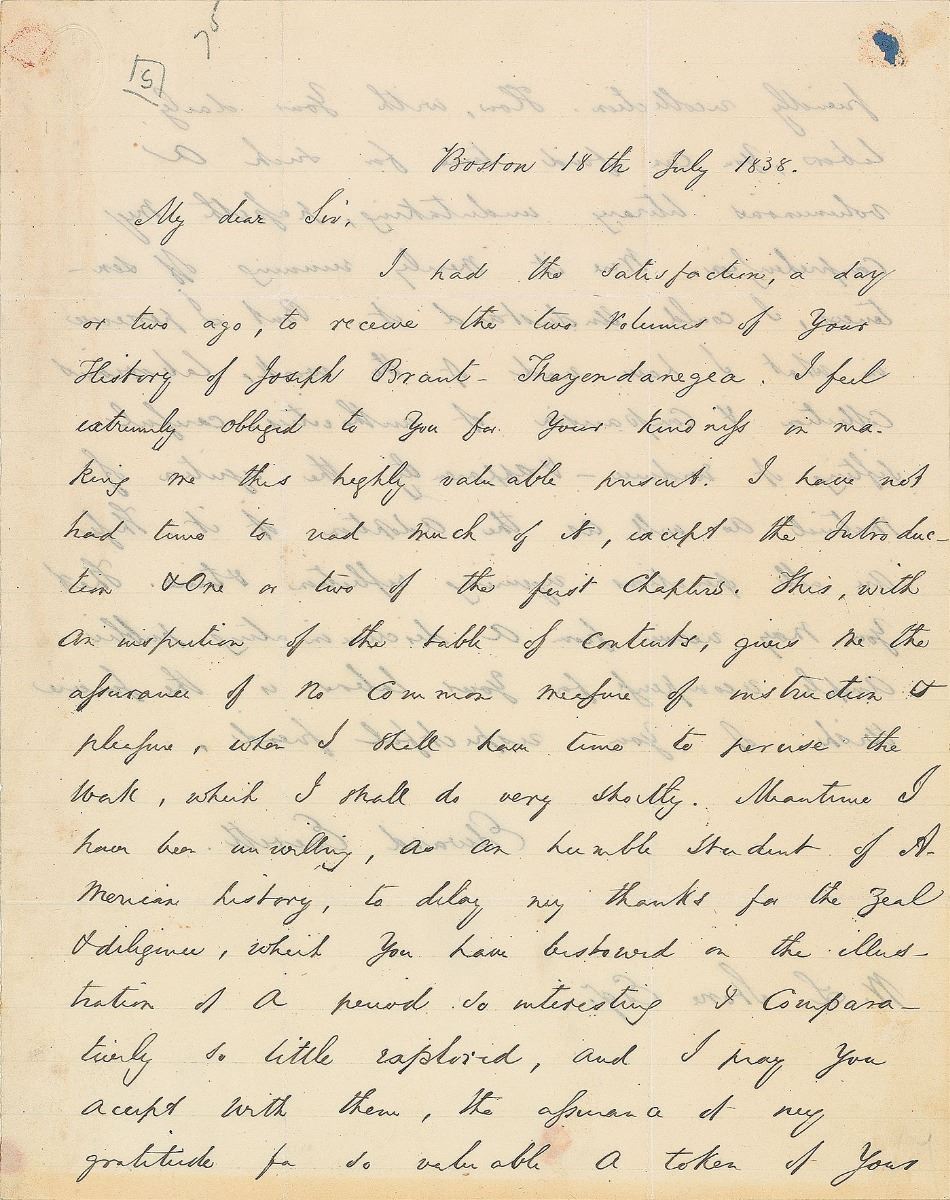 75
5
Boston 18th July 1838.
My dear Sir,
I had the satisfaction, a day
or two ago, to receive the two Volumes of Your
History of Joseph Brant - Thayendanegea. I feel
extremely obliged to You for Your kindness in ma-
king me this highly valuable present. I have not
had time to read much of it, except the Introduc-
tion & One or two of the first Chapters. This, with
an inspection of the table of contents, gives me the
assurance of no common measure of instruction &
pleasure, when I shall have time to peruse the
Work, which I shall do very shortly. Meantime I
have been unwilling, as an humble student of A-
merican history, to delay my thanks for the zeal
& diligence, which You have bestowed on the illus-
tration of a period so interesting & Compara-
tively so little explored, and I pray You
accept with them, the assurance of my
gratitude for so valuable a token of Your